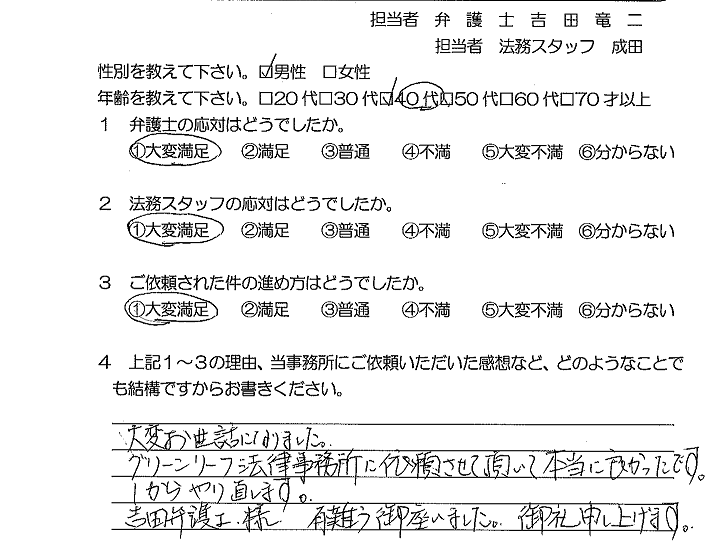 担当者 弁護士吉田竜二
担当者 法務スタッフ 成田
性別を教えて下さい。☑男性 □女性
年齢を教えて下さい。□20代□30代☑40代□50代□60代□70才以上
1 弁護士の応対はどうでしたか。
①大変満足 ②満足 ③普通 ④不満 ⑤大変不満 ⑥分からない
2 法務スタッフの応対はどうでしたか。
①大変満足 ②満足 ③普通 ④不満 ⑤大変不満 ⑥分からない
3 ご依頼された件の進め方はどうでしたか。
①大変満足 ②満足 ③普通 ④不満 ⑤大変不満 ⑥分からない
4 上記1～3の理由、当事務所にご依頼いただいた感想など、どのようなことで
も結構ですからお書きください。
大変お世話になりました。
グリーンリーフ法律事務所に依頼させて頂いて本当に良かったです。
1からやり直します。
吉田弁護士様 有難う御座いました。御礼申し上げます。